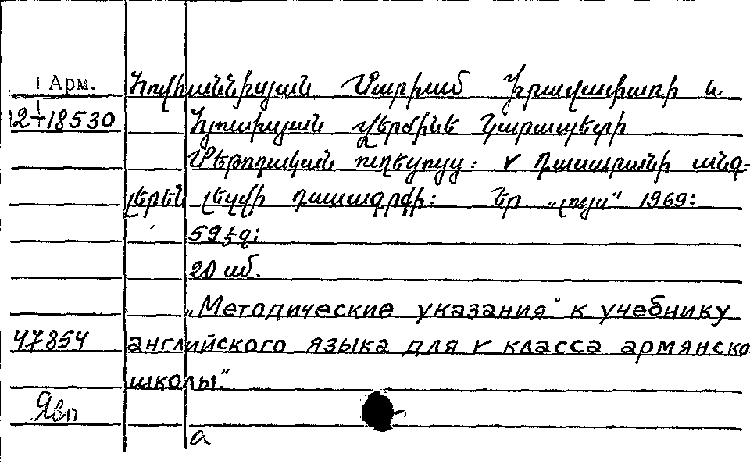 Арм. Հովհաննիսյան Մարիամ Հրավարտի և
12+18530 Հյուսիսյան Վերժինե Կարապետի
Մեթոդական ուղեցույց: V դասարանի անգ-
լերեն լեզվի դասագրքի: Եր „Լույս“ 1969:
59 էջ:
20 սմ.
„Методические указания" к учебнику
47854 английского языка для V класса армянско
школы".
а